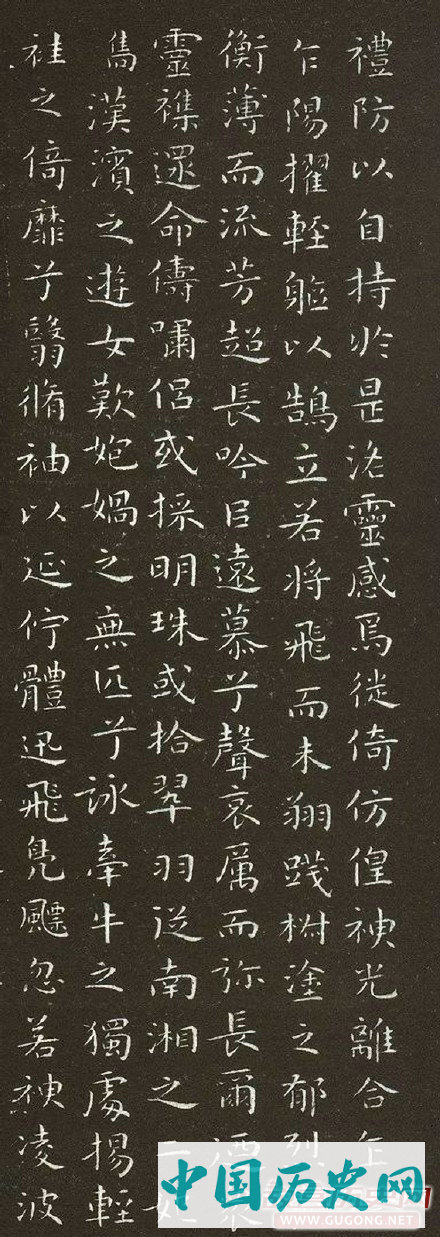 禮防以自持於是洛靈感焉徙倚仿偟神光離合乍
乍陽擢輕軀以鵠立若將飛而未翔踐椒塗之郁烈
衡薄而流芳超長吟㠯遠慕兮聲哀厲而弥長爾迺衆
靈襍遝命儔嘯侶或採明珠或拾翠羽從南湘之二妃
攜漢濱之遊女歎匏媧之無匹兮詠牽牛之獨處揚輕
袿之倚靡兮翳脩袖以延佇體迅飛鳧飄忽若神凌波
中国历史网
WWW.GUGONG.NET